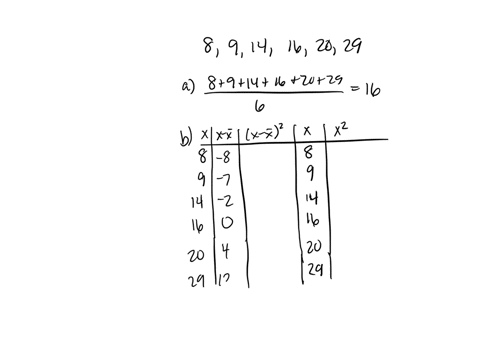 8, 9, 14, 16, 20, 29
a) 8+9+14+16+20+29 = 16
6
b) x x-x̄ (x-x̄)² x x²
8 -8 8
9 -7 9
14 -2 14
16 0 16
20 4 20
29 29